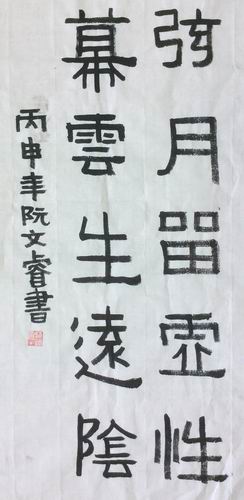 弦月留虛性
幕雲生遠陰
丙申年阮文睿書